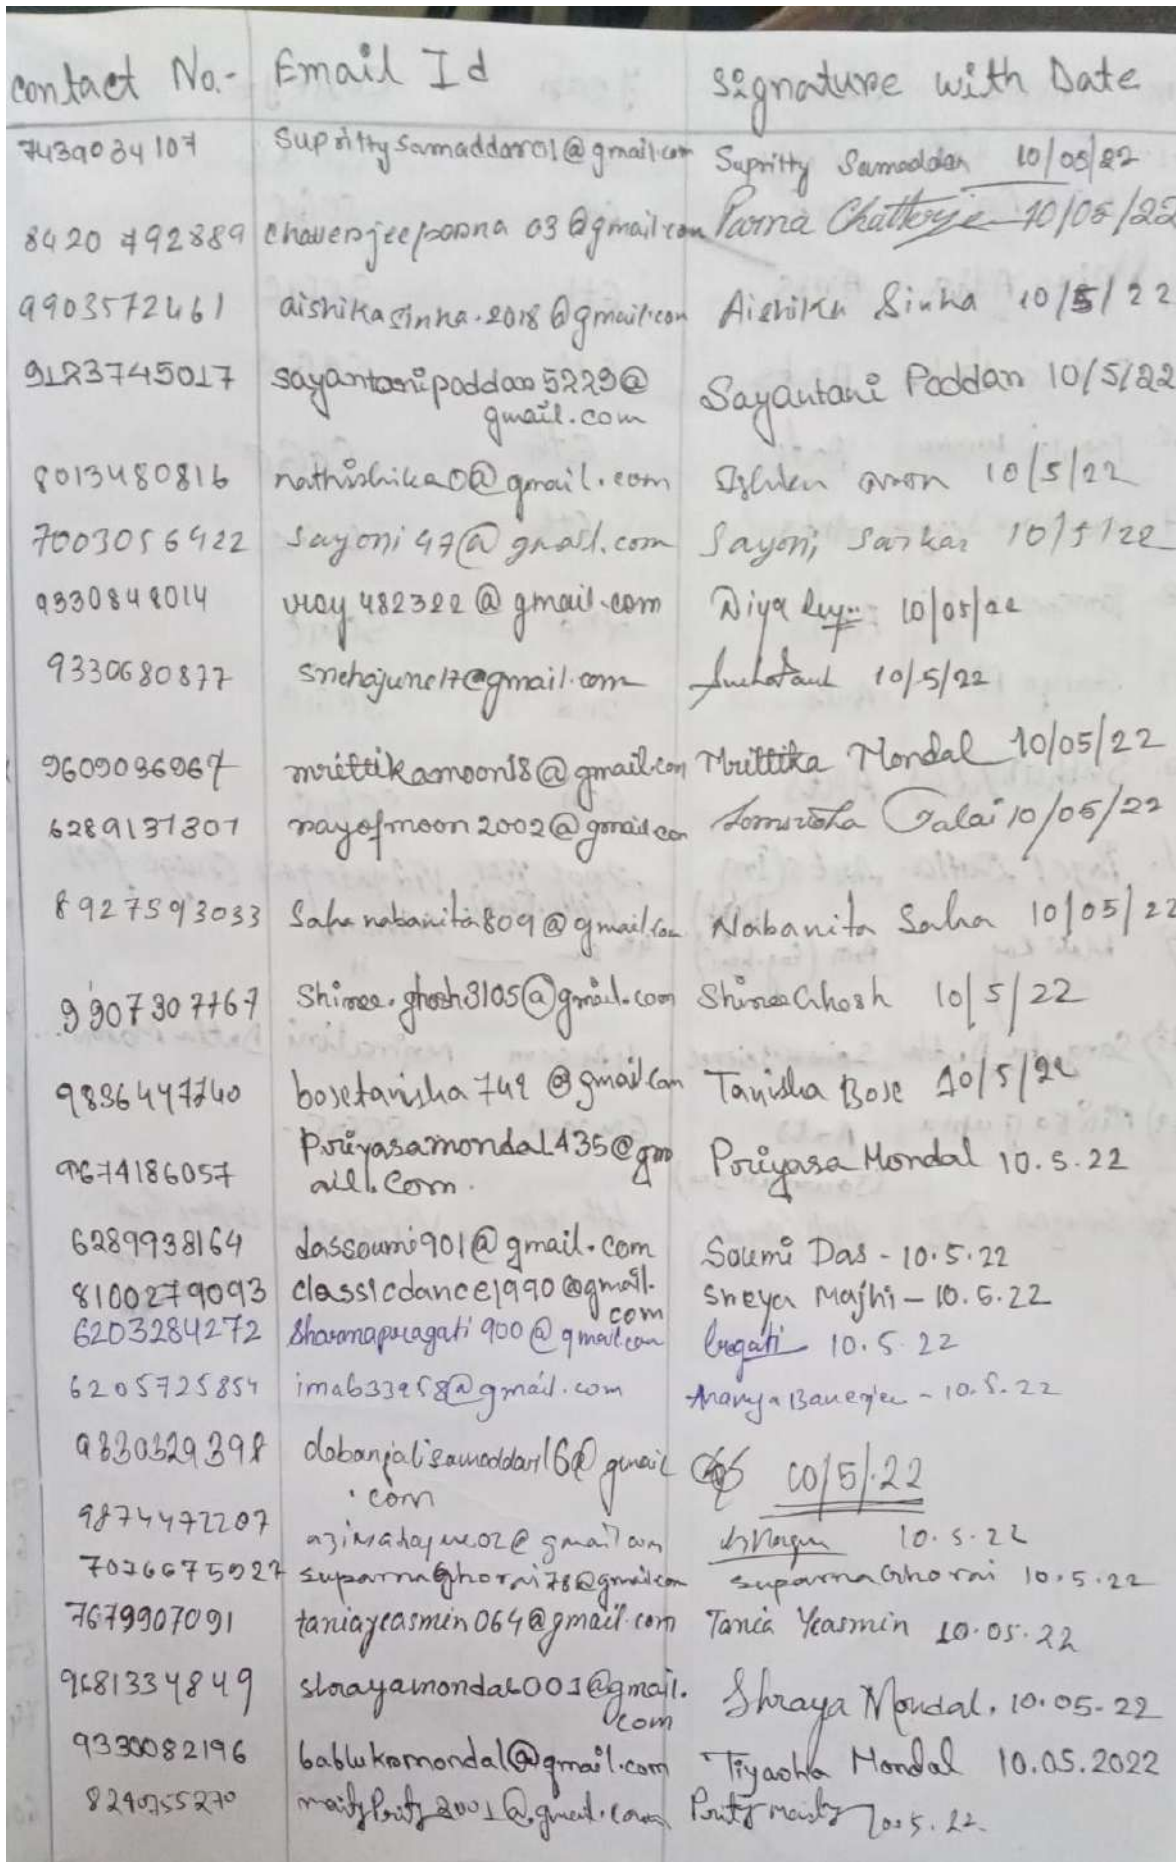 contact No.- Email Id Signature with Date
7439034107 Suprittysamaddar01@gmail.com Supritty Samaddar 10/05/22
8420792889 chatterjeeparna03@gmail.com Parna Chatterjee 10/05/22
9903572461 aishikasinha.2018@gmail.com Aishika Sinha 10/5/22
9123745017 sayantanipoddar5229@ Sayantani Poddar 10/5/22
gmail.com
8013480816 nathishika0@gmail.com 10/5/22
7003056422 sayoni47@gmail.com Sayoni Sarkar 10/5/22
9330848014 vroy482322@gmail.com Diya Roy 10/05/22
9330680877 snehajune17@gmail.com 10/5/22
9609096967 mrittikamoon18@gmail.com Mrittika Mondal 10/05/22
6289137307 rayofmoon2002@gmail.com 10/05/22
8927593033 Sahanabanita809@gmail.com Nabanita Saha 10/05/22
9907307767 Shinee.ghosh3105@gmail.com Shinee Ghosh 10/5/22
9836447740 bosetanisha742@gmail.com Tanisha Bose 10/5/22
9674186057 Priyasamondal435@gm Priyasa Mondal 10.5.22
ail.com.
6289938164 dassoumi901@gmail.com Soumi Das - 10.5.22
8100279093 classicdance1990@gmail. Sneya Majhi - 10.5.22
com
6203284272 Sharmapragati900@gmail.com Pragati 10.5.22
6205725854 imab33958@gmail.com Ananya Banerjee - 10.5.22
9330329398 debanjalisamaddar16@gmail 10/5/.22
.com
9874472207 10.5.22
7076675927 suparnaghorai78@gmail.com suparna Ghorai 10.5.22
7679907091 taniayeasmin064@gmail.com Tania Yeasmin 10.05.22
9681334849 shrayamondal001@gmail. Shraya Mondal. 10.05.22
com
9330082196 bablukrmondal@gmail.com Tiyasha Mondal 10.05.2022
maityPrity2001@gmail.com Prity maity 10.5.22